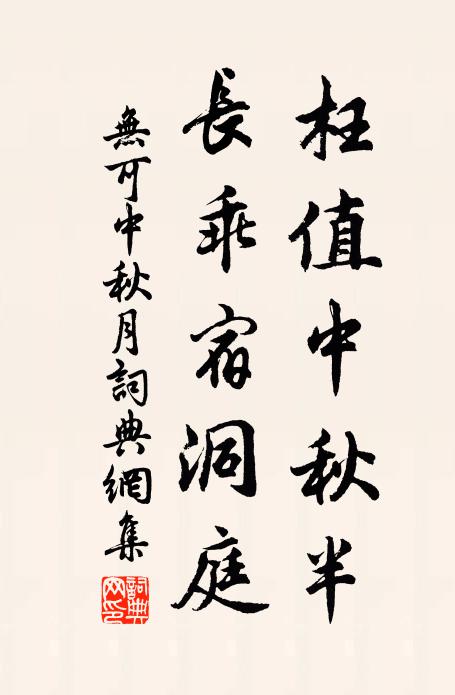 枉值中秋半
長乖宿洞庭
無可中秋月詞典網集
詞典网印